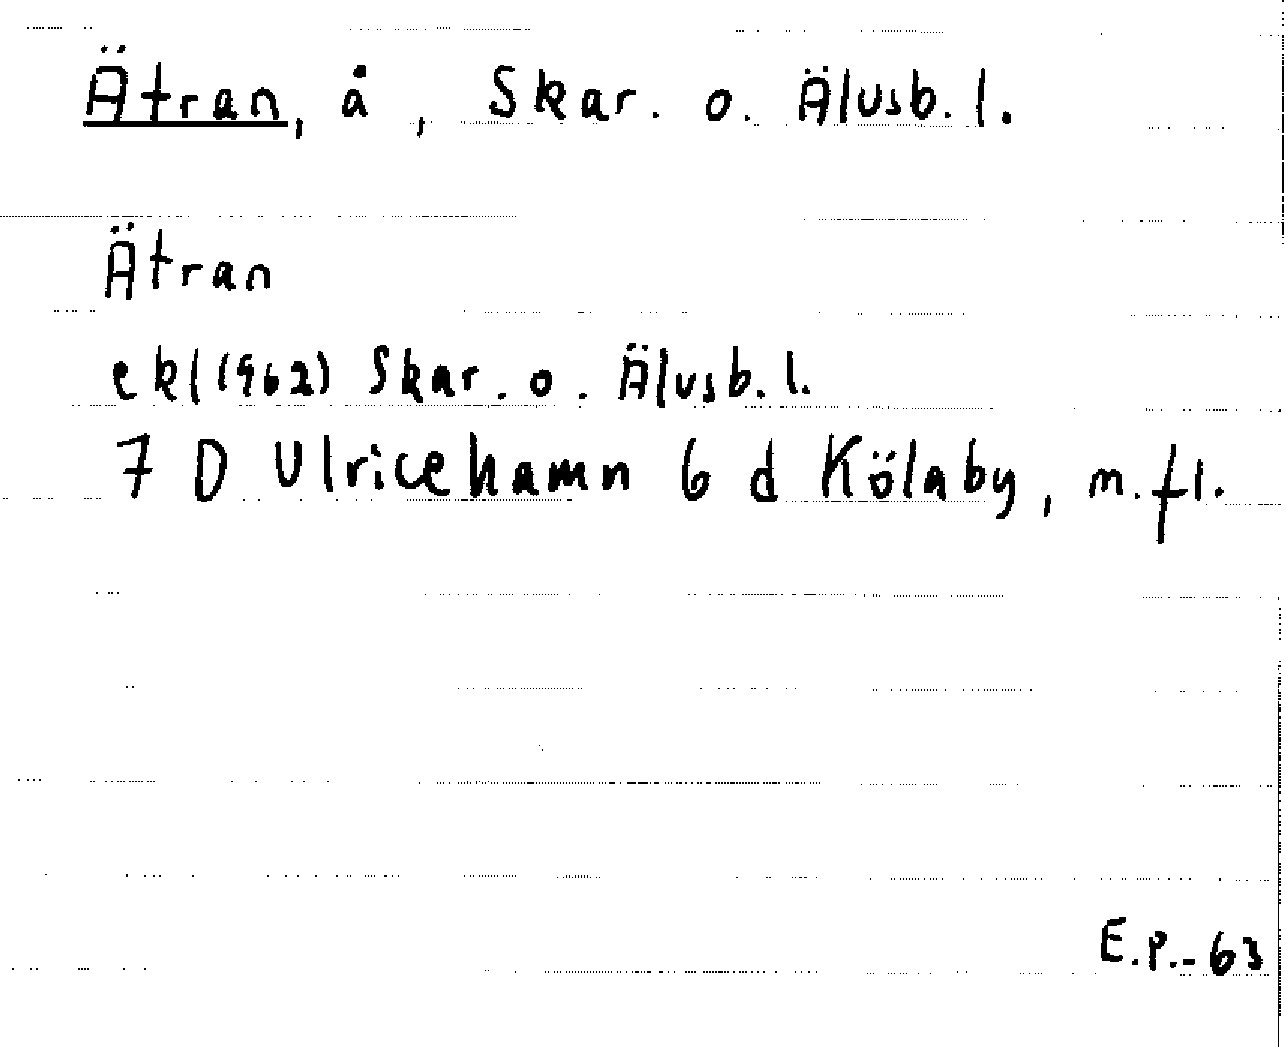 Ätran, å, Skar. o. Älvsb. l.
Ätran
ekl (1962) Skar. o. Älvsb. l.
7 D Ulricehamn 6 d Kölaby, m. fl.
E.P.-63